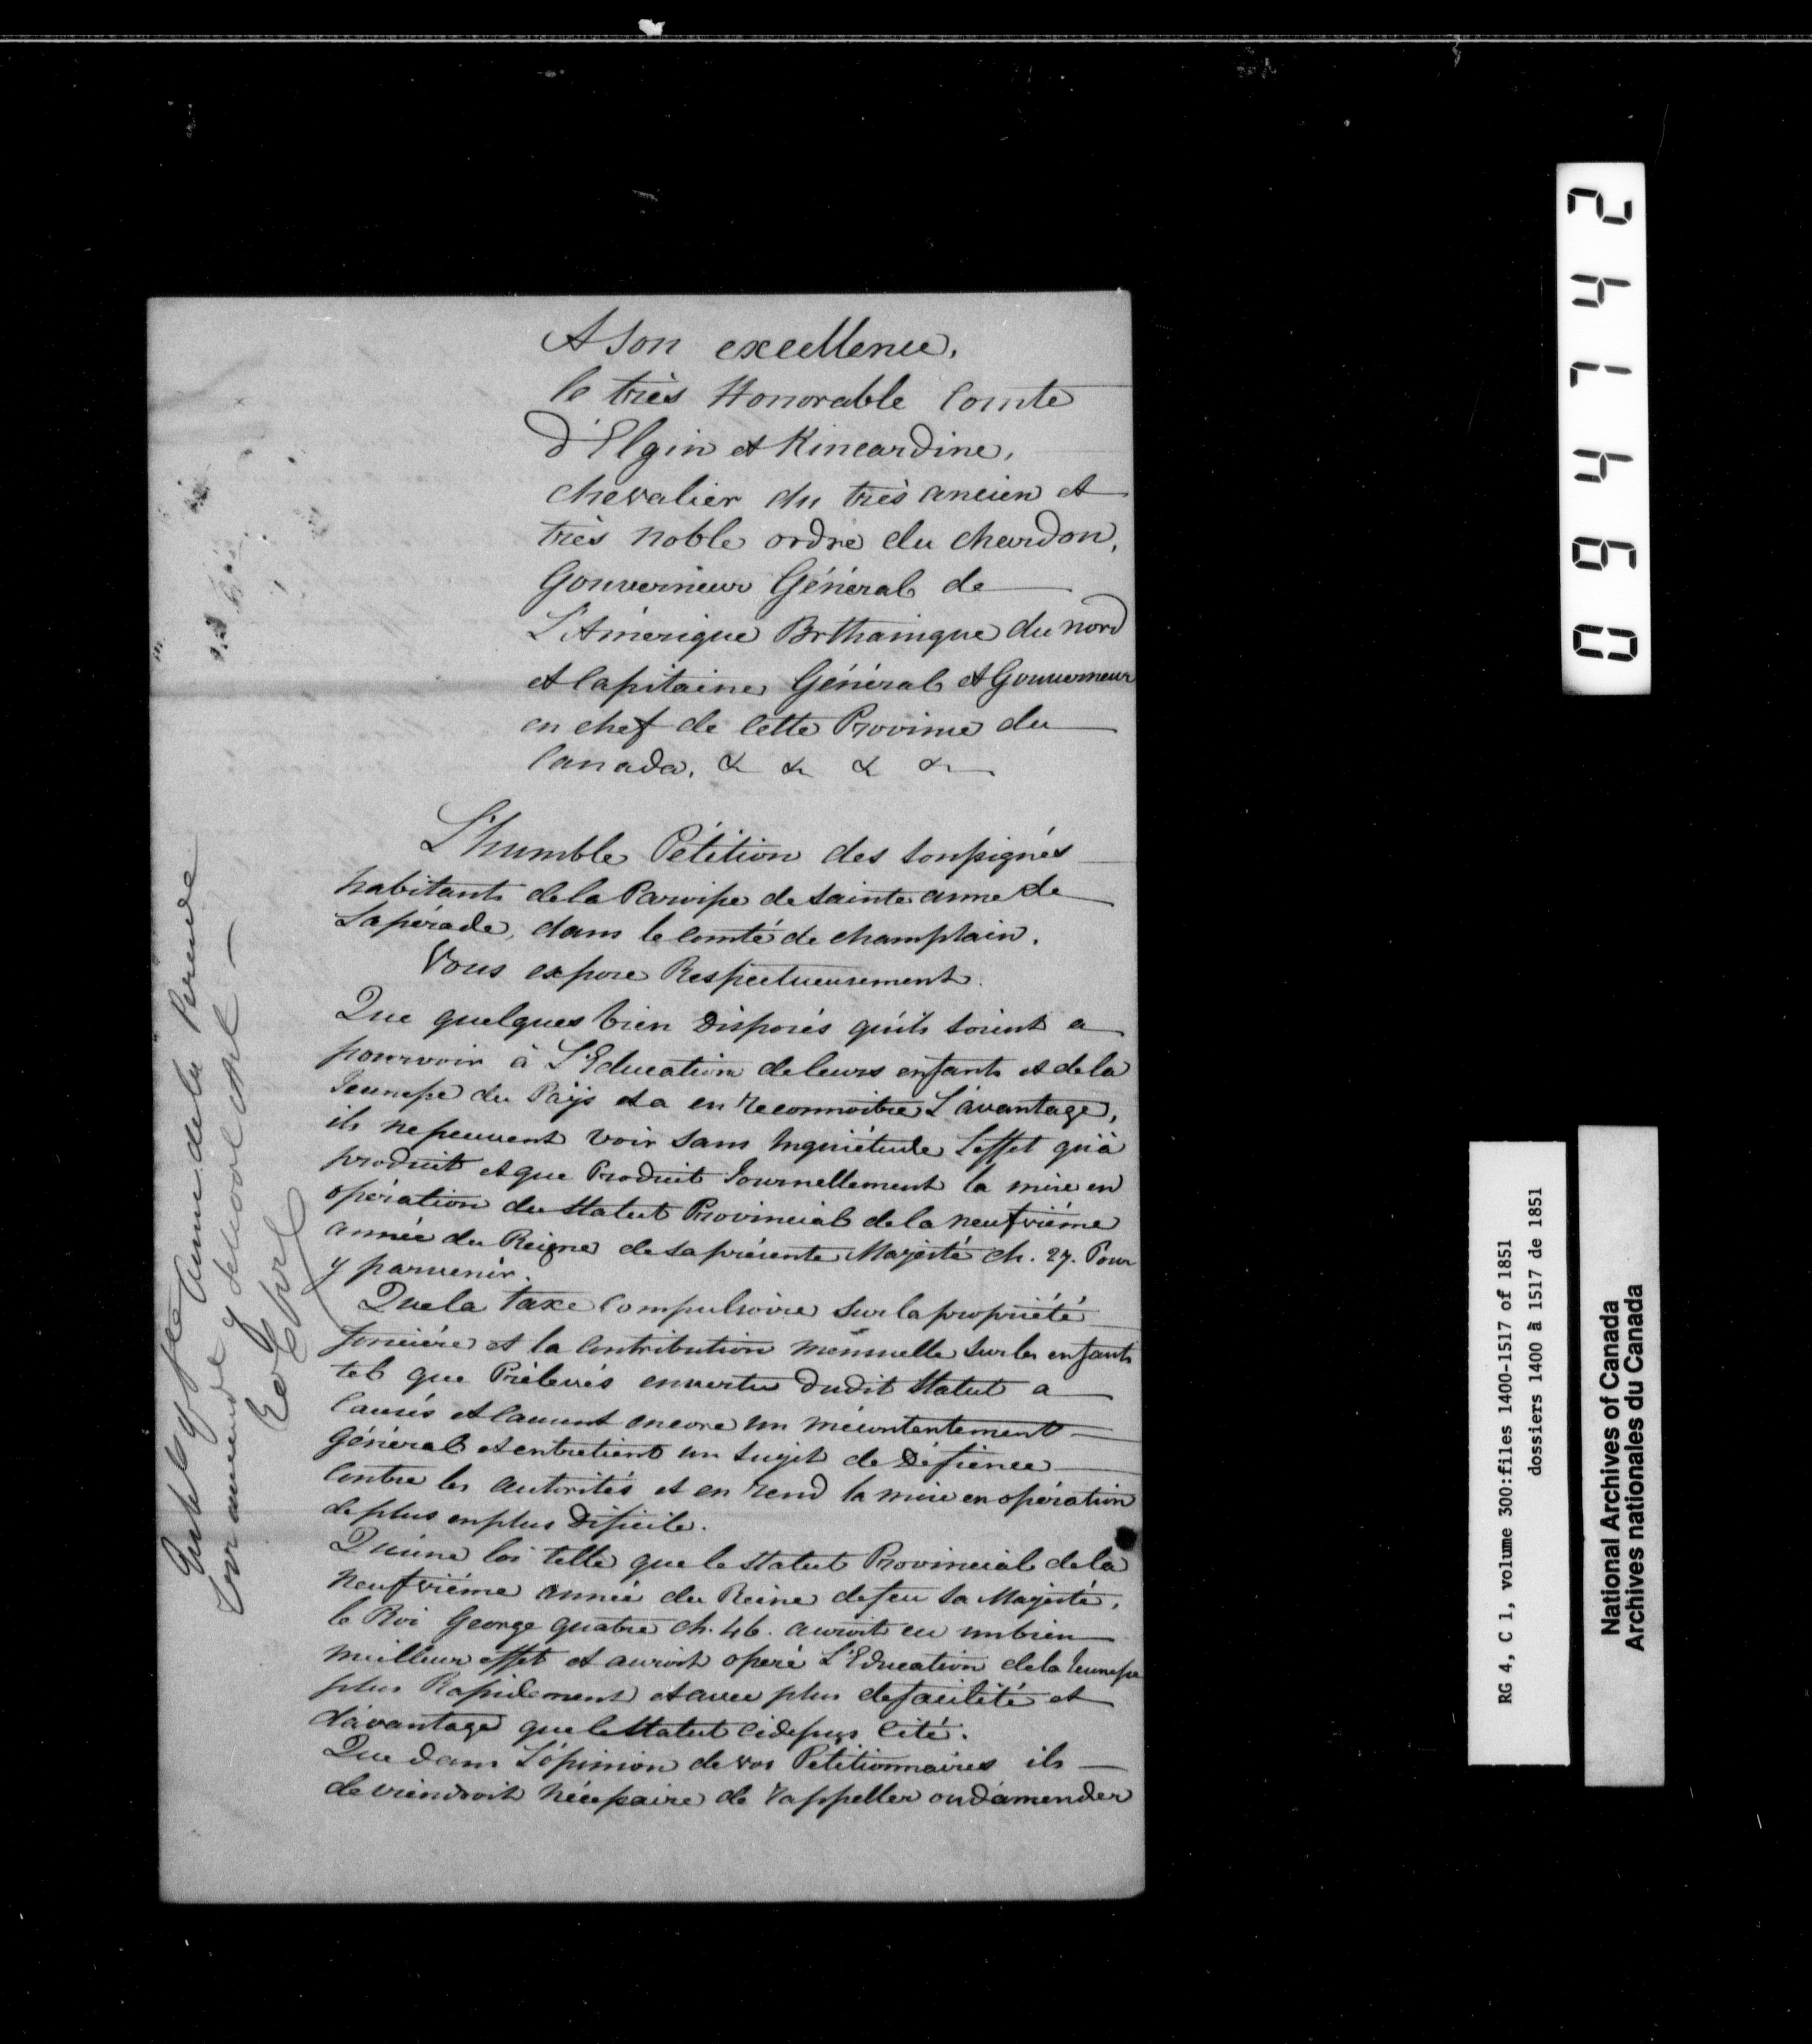 A Son excellence,
le très Honorable Comte
d'Elgin et Kincardine,
chevalier du très ancien et
très noble ordre du chardon,
Gouverneur Général de
L'Amérique Brthainque du nord
et Capitaine Général et Gouverneur
en chef de cette Province du
Canada. & & & &
L'humble Pétition des soussignés
habitants de la Paroisse de Sainte anne de
Lapérade, dans le comté de champlain.
Vous expose Respectueusement.
Que quelques bien disposés qu'ils soient a
pourvoir à L'Education de leurs enfants et de la
Jeunesse du Païs et a en reconnoitre L'avantage,
ils ne peuvent voir sans Inquiétude l'effet qu'à
produit et que Produit Journellement la mise en
opération du Statut Provincial de la neufvième
année du Reigne de sa présente Majesté ch. 27. Pour
y parvenir.
Que la taxe Compulsoire sur la propriété
foncière et la Contribution mensuelle sur les enfants
tel que Prélevés en vertu dudit Statut a
Causés et causent encore un mécontentement
Général et entretient un sujet de Défience
Contre les autorités et en rend la mise en opération
de plus en plus dificile.
Qu'une loi telle que le Statut Provincial de la
neufvième année du Reine de feu Sa Majesté,
le Roi George quatre ch. 46. auroit eu un bien
meilleur effet et auroit opéré L'Education de la Jeunesse
plus Rapidement et avec plus de facilité et
d'avantage que le Statut cidessus cité.
Que dans L'opinion de vos Pétitionnaires ils
deviendroit nécessaire de rappeller ou d'amender
Anne de la Perade
School Act
RG 4, C 1, volume 300:files 1400-1517 of 1851
dossiers 1400 à 1517 de 1851
National Archives of Canada
Archives nationales du Canada
094742